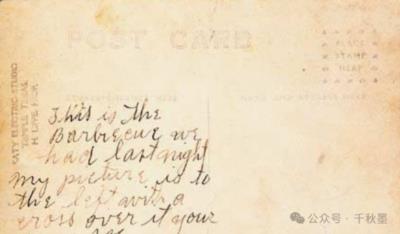 POST CARD
PLACE
STAMP
HERE
KATY ELECTRIC STUDIO
TEMPLE TEXAS
H. LIPPE PROP.
This is the
Barbecue we
had last night
my picture is to
the left with a
cross over it your
公众号 · 千秋墨